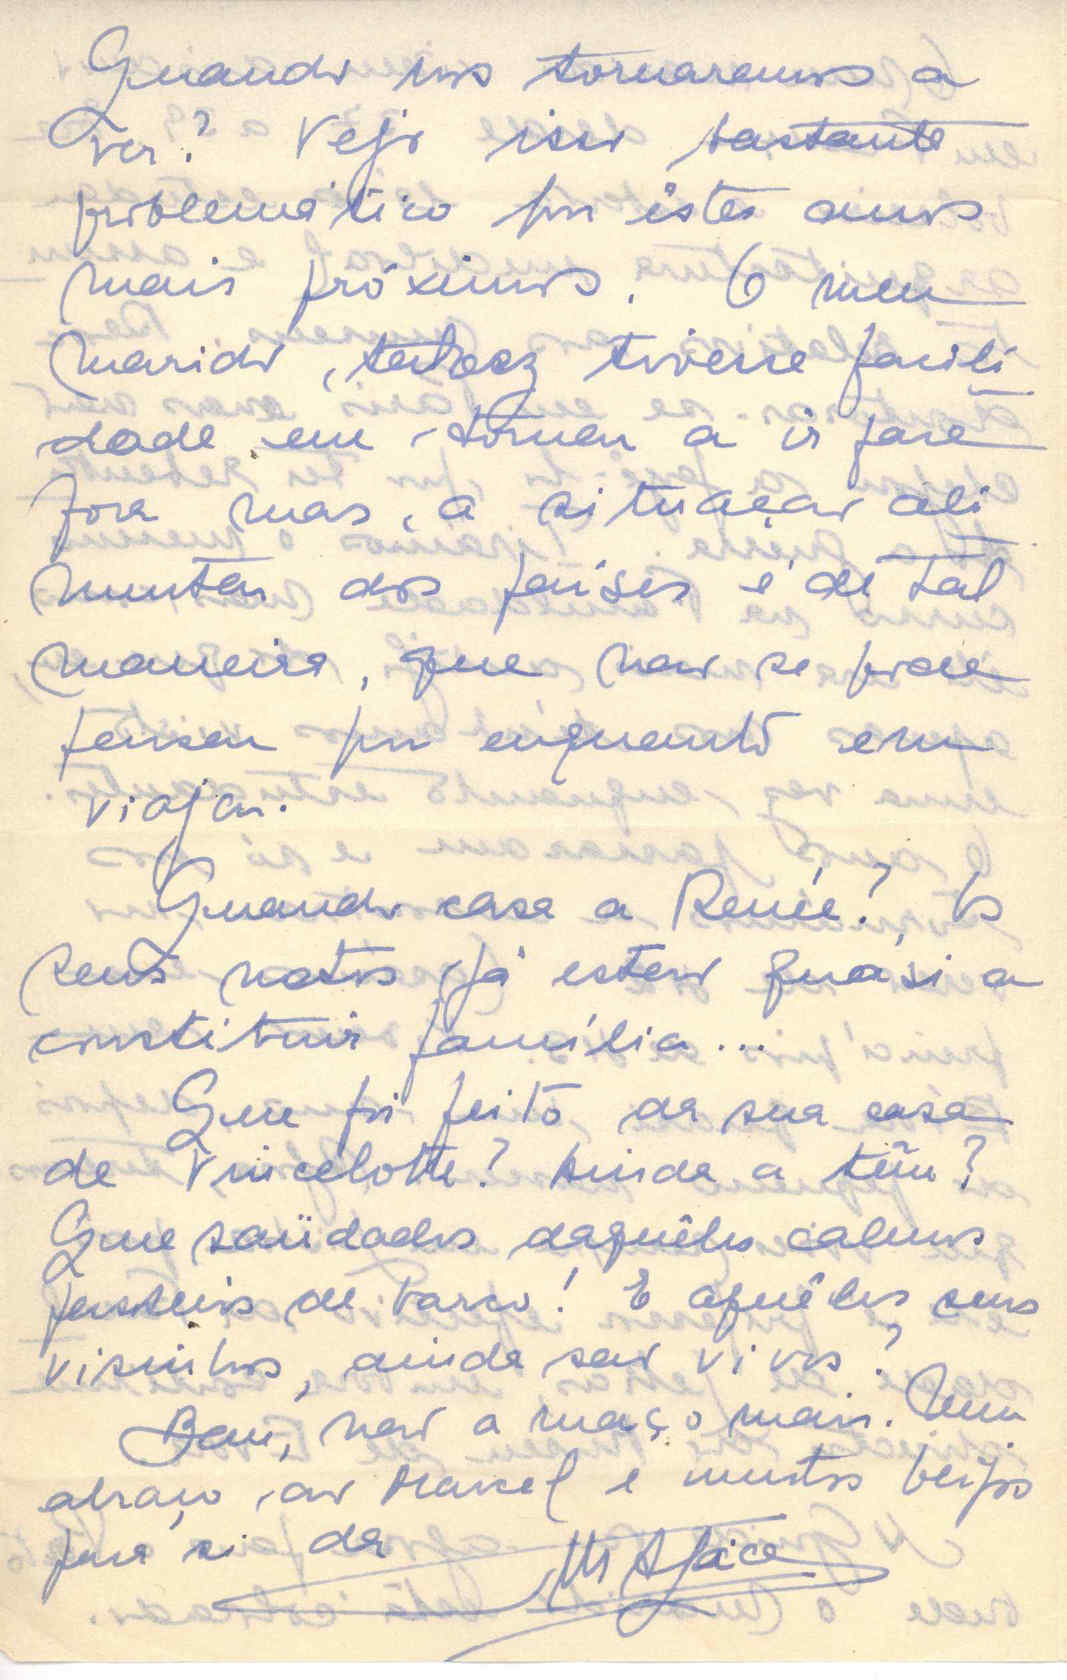 Quando nos tornaremos a
ver? Vejo isso bastante
problemático por êstes anos
mais próximos. O meu
marido, talvez tivesse facili
dade em tornar a ir para
fora mas, a situação ali
mentar dos países é de tal
maneira, que não se pode
pensar por enquanto em
viajar.
Quando casa a Renée? Os
seus netos já estão quási a
constituir família...
Que foi feito da sua casa
de Vincelotte? Ainda a têm?
Que saüdades daquêles calmos
passeios de barco! E aquêles seus
visinhos, ainda são vivos?
Bem, não a maço mais. Um
abraço ao Marcel e muitos beijos
para si da